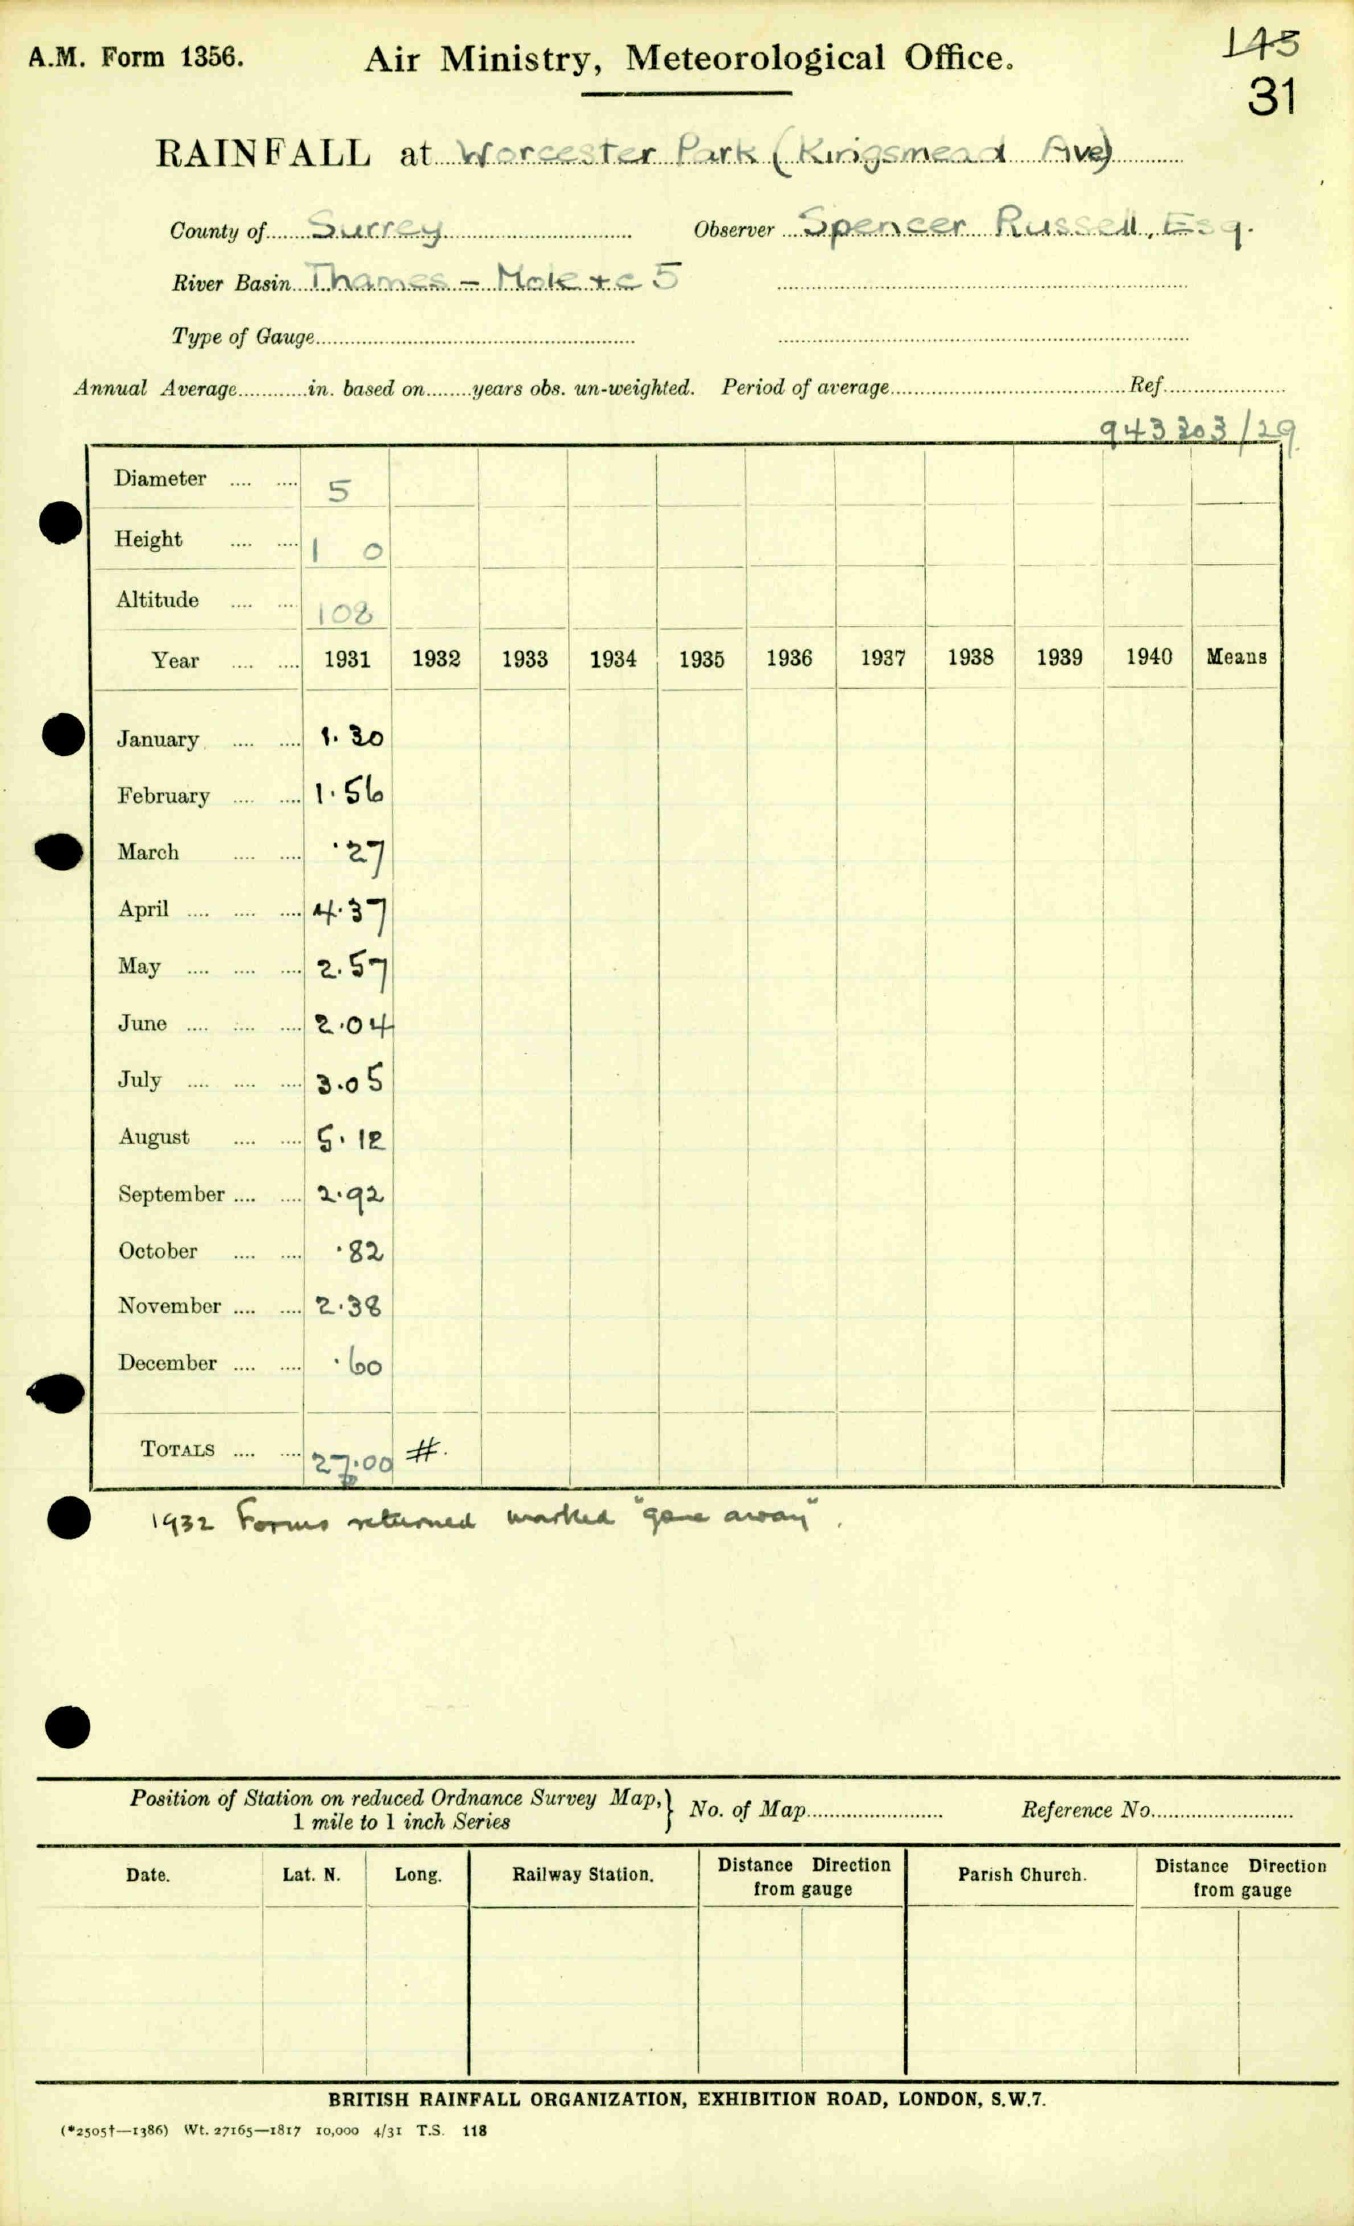 A.M. Form 1356. Air Ministry, Meteorological Office. 145
31
RAINFALL at Worcester Park (Kingsmead Ave)
County of Surrey Observer Spencer Russell, Esq.
River Basin Thames - Mole &c 5
Type of Gauge
Annual Average in. based on years obs. un-weighted. Period of average Ref.
943303/29
Diameter 5
Height 1 0
Altitude 108
Year 1931 1932 1933 1934 1935 1936 1937 1938 1939 1940 Means
January 1.30
February 1.56
March .27
April 4.37
May 2.57
June 2.04
July 3.05
August 5.12
September 2.92
October .82
November 2.38
December .60
TOTALS 27.00 #.
1932 Forms returned marked "gone away".
Position of Station on reduced Ordnance Survey Map, } No. of Map Reference No.
1 mile to 1 inch Series
Date. Lat. N. Long. Railway Station. Distance Direction from gauge Parish Church. Distance Direction from gauge
BRITISH RAINFALL ORGANIZATION, EXHIBITION ROAD, LONDON, S.W.7.
(*2505†—1386) Wt. 27165—1817 10,000 4/31 T.S. 118